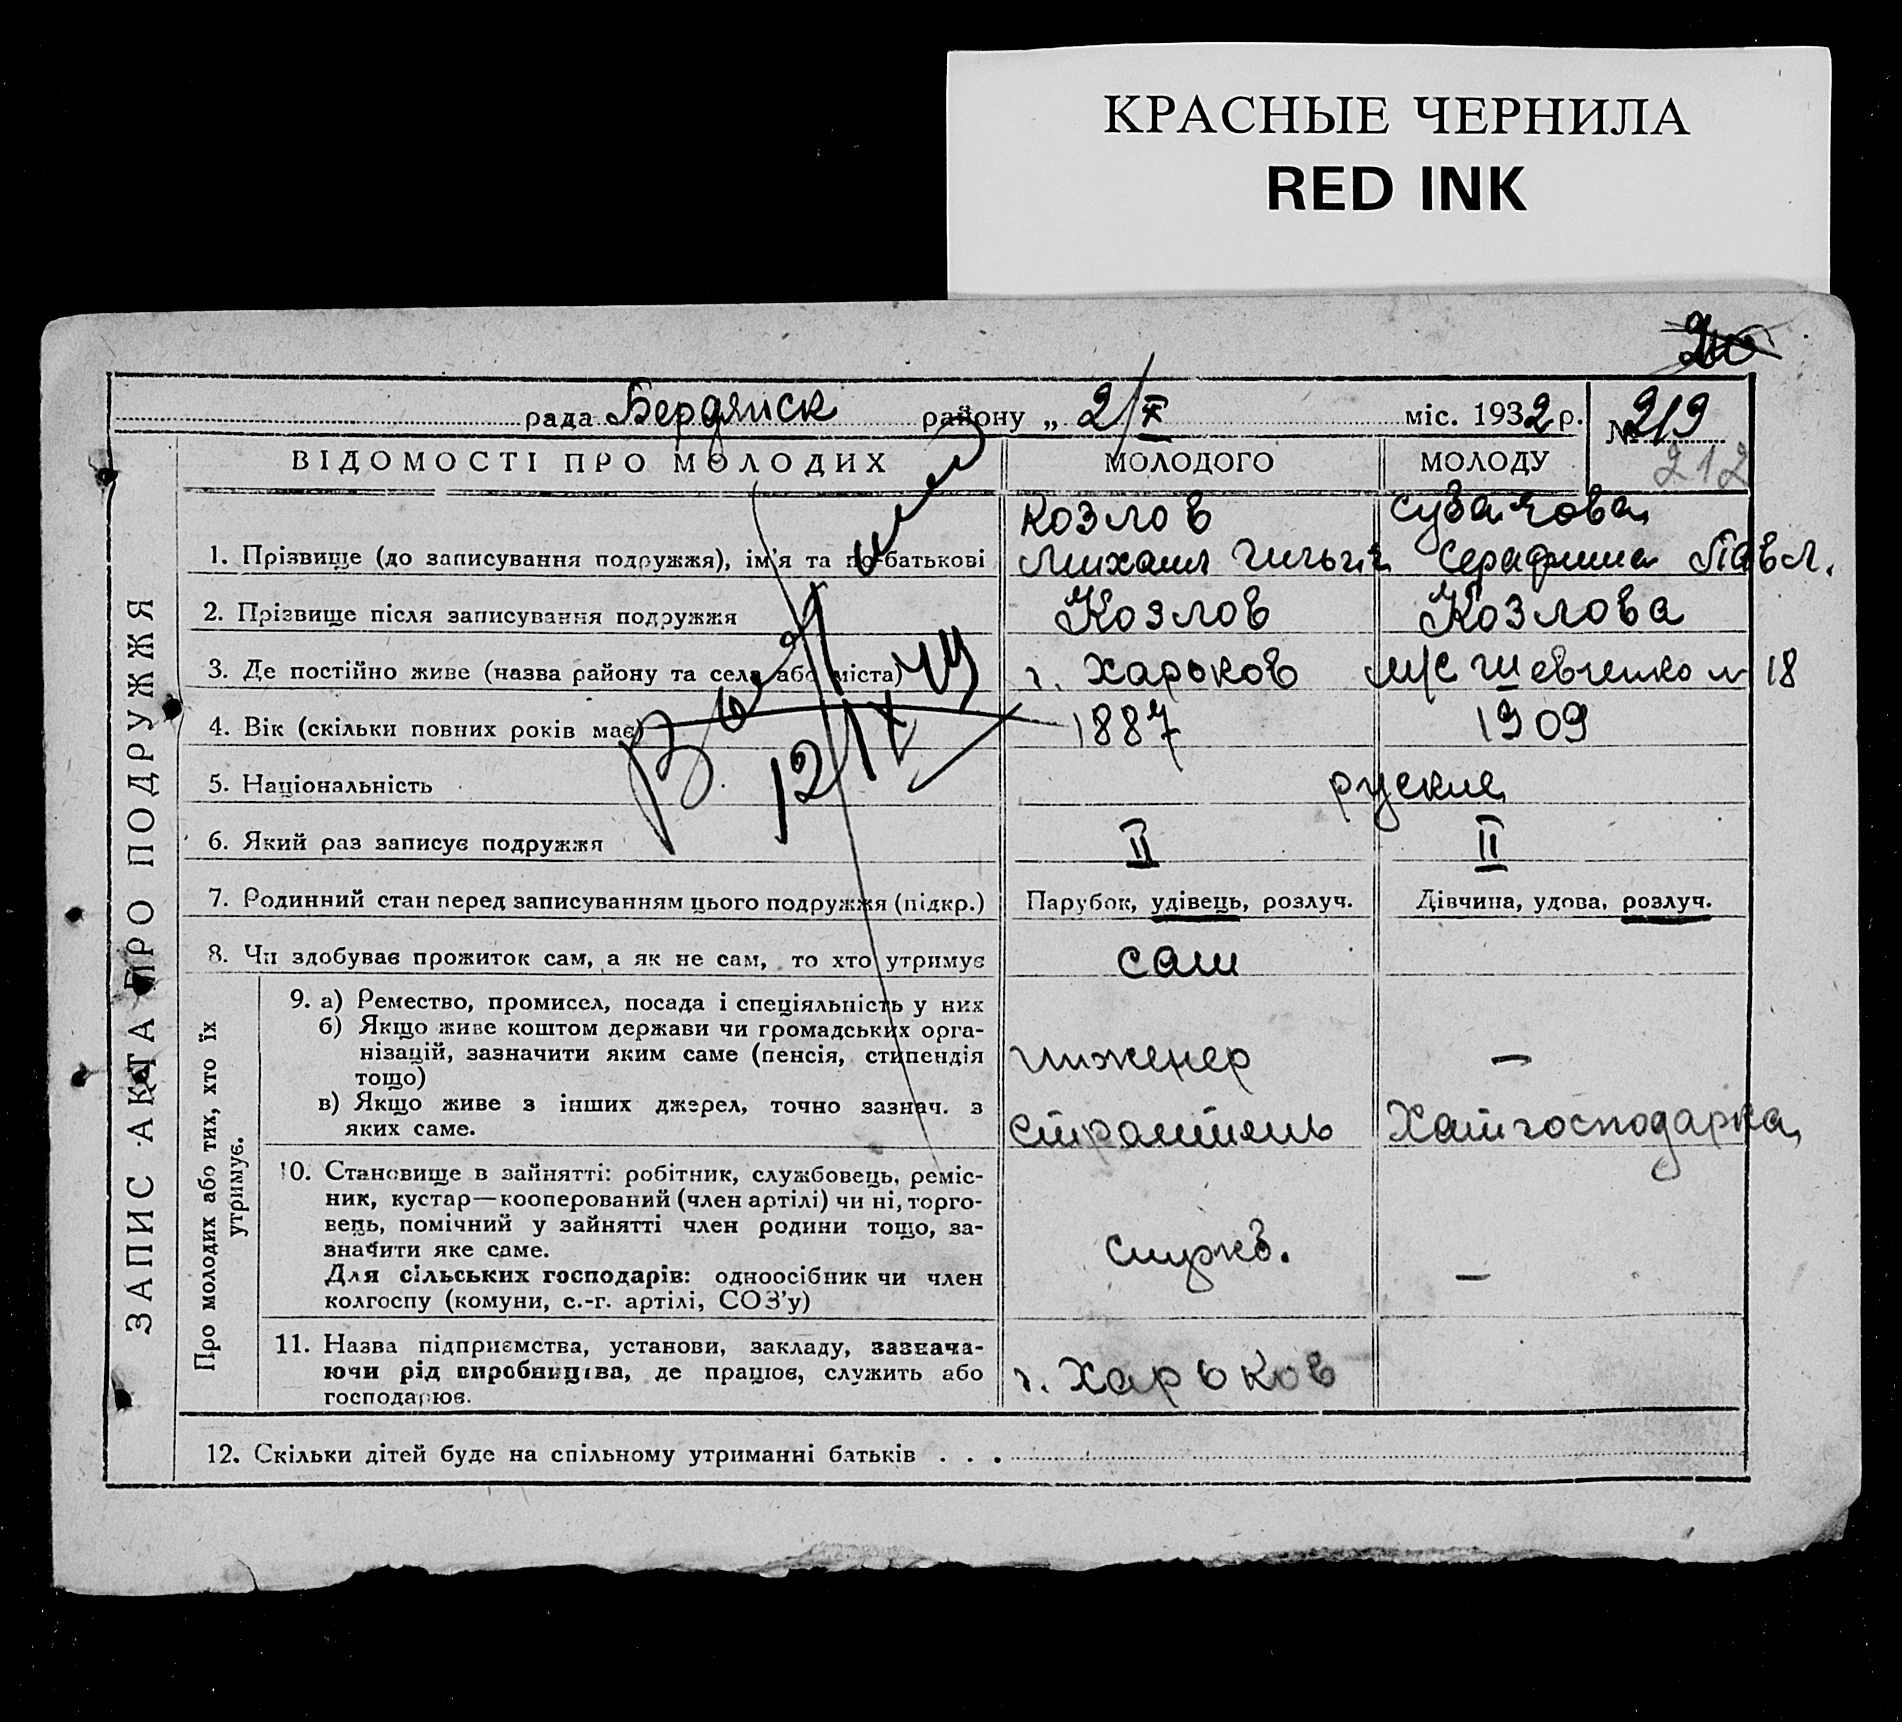 КРАСНЫЕ ЧЕРНИЛА
RED INK
рада Бердянск району „ 2/X міс. 1932 р. № 219
212
ЗАПИС АКТА ПРО ПОДРУЖЖЯ
ВІДОМОСТІ ПРО МОЛОДИХ МОЛОДОГО МОЛОДУ
Козлов
1. Прізвище (до записування подружжя), ім'я та по-батькові Михаил Серафима Павл.
2. Прізвище після записування подружжя Козлов Козлова
3. Де постійно живе (назва району та села або міста) г. Харьков Шевченко 18
4. Вік (скільки повних років має) 1887 1909
12/IX
5. Національність руские
6. Який раз записує подружжя II II
7. Родинний стан перед записуванням цього подружжя (підкр.) Парубок, удівець, розлуч. Дівчина, удова, розлуч.
8. Чи здобував прожиток сам, а як не сам, то хто утримує сам
Про молодих або тих, хто їх утримує.
9. а) Ремество, промисел, посада і спеціяльність у них
б) Якщо живе коштом держави чи громадських орга-
нізацій, зазначити яким саме (пенсія, стипендія инженер —
тощо)
в) Якщо живе з інших джерел, точно зазнач. з
яких саме. Хатгосподарка
10. Становище в зайнятті: робітник, службовець, реміс-
ник, кустар—кооперований (член артілі) чи ні, торго-
вець, помічний у зайнятті член родини тощо, за-
значити яке саме. служб. —
Для сільських господарів: одноосібник чи член
колгоспу (комуни, с.-г. артілі, СОЗ'у)
11. Назва підприємства, установи, закладу, зазнача-
ючи рід виробництва, де працює, служить або г. Харьков
господарює.
12. Скільки дітей буде на спільному утриманні батьків . . .